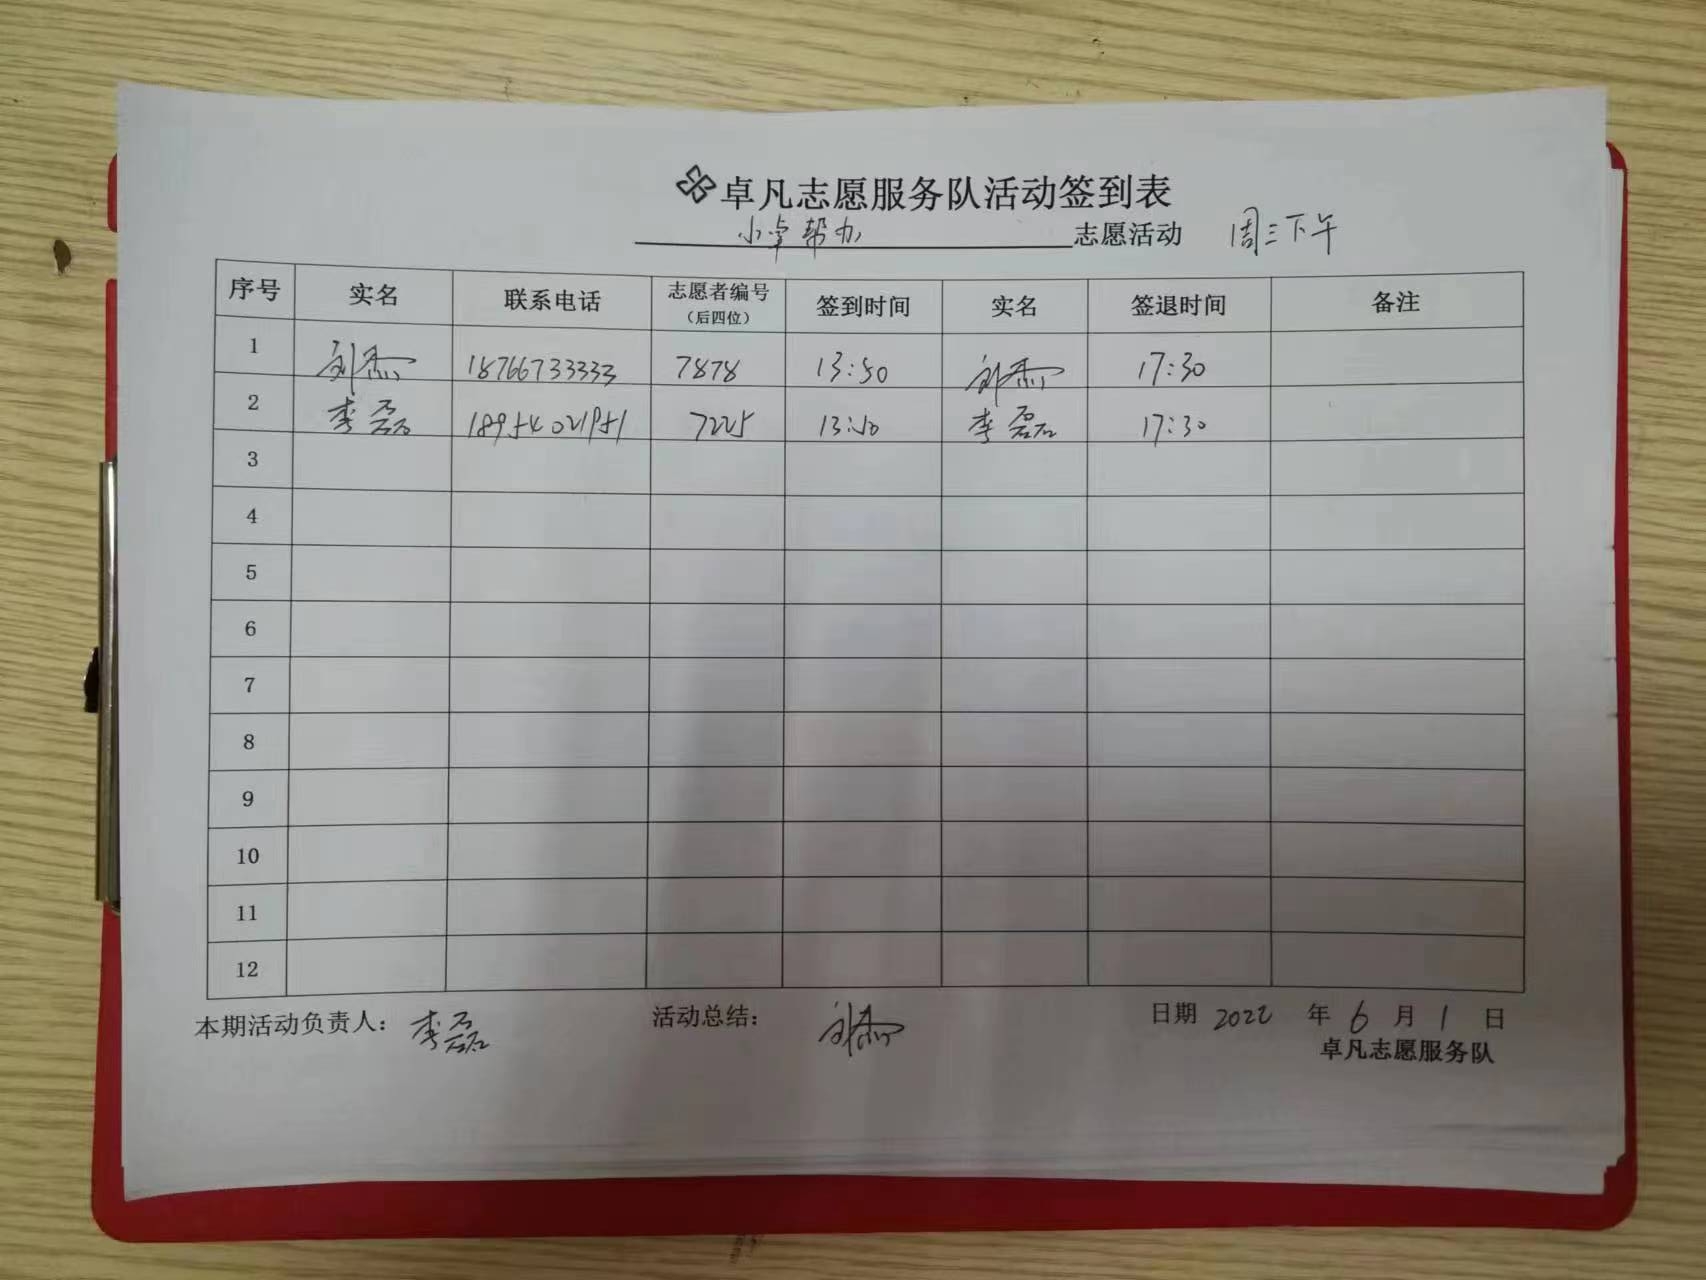 卓凡志愿服务队活动签到表
小卓帮办 志愿活动 周三下午
序号 实名 联系电话 志愿者编号（后四位） 签到时间 实名 签退时间 备注
1 刘杰 18766733333 7878 13:50 刘杰 17:30
2 李磊 18954021951 7225 13:50 李磊 17:30
3
4
5
6
7
8
9
10
11
12
本期活动负责人： 李磊 活动总结： 刘杰 日期 2022 年 6 月 1 日
卓凡志愿服务队